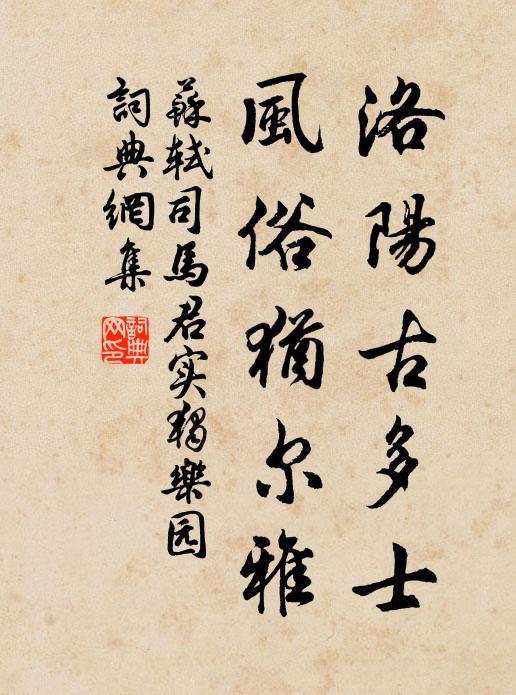 洛陽古多士
風俗猶尔雅
蘇轼司馬君实独樂园
詞典網集
詞典网印